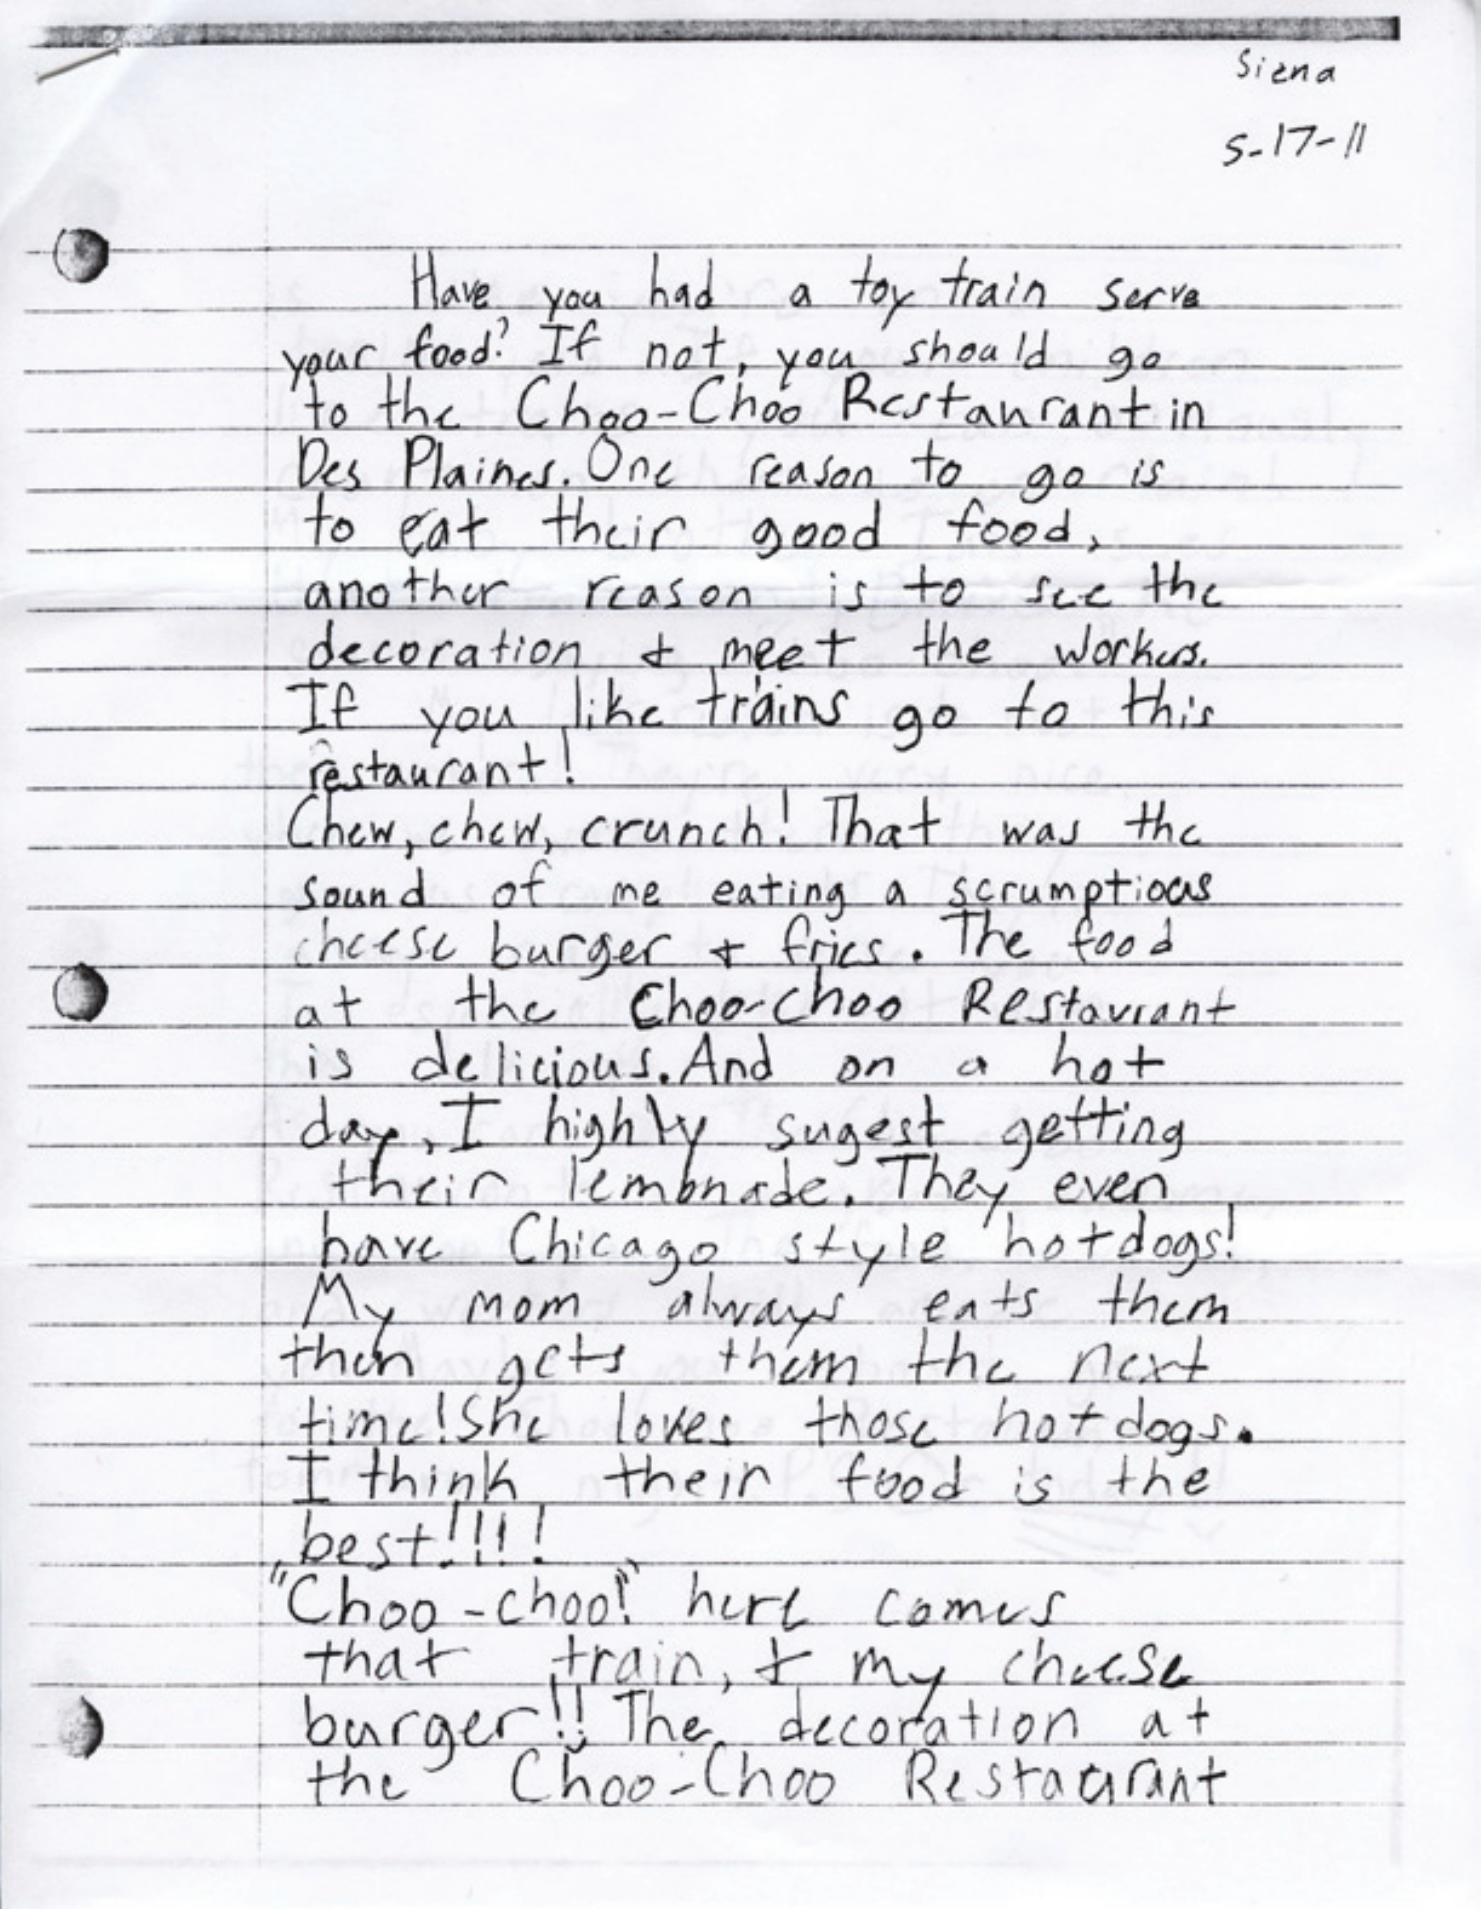 Siena
5-17-11
Have you had a toy train serve
your food? If not, you should go
to the Choo-Choo Restaurant in
Des Plaines. One reason to go is
to eat their good food,
another reason is to see the
decoration & meet the workers.
If you like trains go to this
restaurant!
Chew, chew, crunch! That was the
sound of me eating a scrumptious
cheese burger & fries. The food
at the Choo-choo Restaurant
is delicious. And on a hot
day, I highly sugest getting
their lemonade. They even
have Chicago style hotdogs!
My mom always eats them
then gets them the next
time! She loves those hotdogs.
I think their food is the
best!!!!
"Choo-choo!" here comes
that train, & my cheese
burger!! The decoration at
the Choo-Choo Restaurant